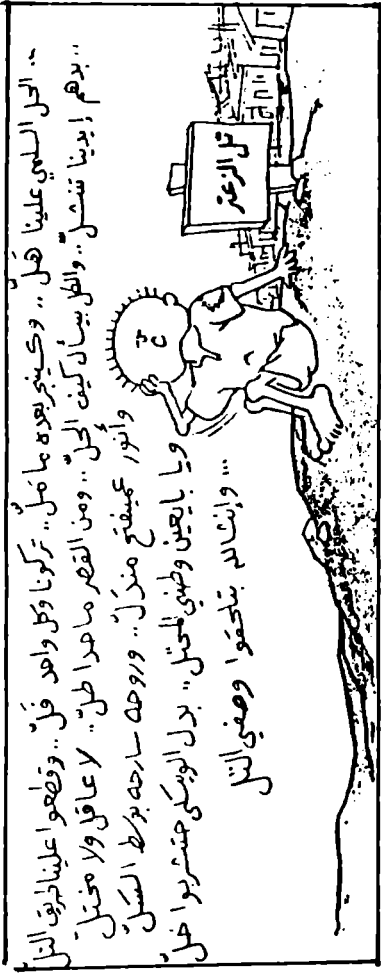 .. الحل السلمي علينا هلّ .. وكيسنجر بعده ما ملّ .. تركونا وكل واحد فلّ .. وقطعوا علينا طريق التل
.. بدهم إيدينا تنشلّ .. والكل بيسأل كيف الحلّ .. ومن القصر ما حدا طلّ .. لا عاقل ولا مختلّ
وأنور عميفتح مندل .. وروحه سارحه بوسط السّل
ويا بايعين وطني المحتل .. بدل الويسكي حتشربوا خلّ
... وإنشالله بتلحقوا وصفي التل
تل الزعتر